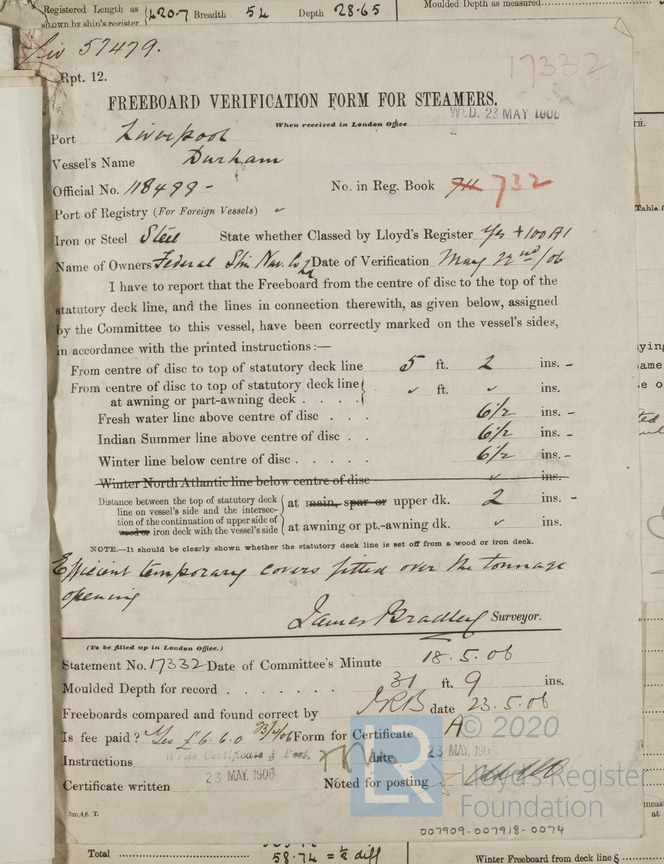 Registered Length as
shown by ship's register
420.7 Breadth 54 Depth 28.65
Moulded Depth as measured
Liv 57479.
Rpt. 12.
17332
FREEBOARD VERIFICATION FORM FOR STEAMERS.
When received in London Office
WED. 23 MAY 1906
Port Liverpool
Vessel's Name Durham
Official No. 118499 - No. in Reg. Book 711 732
Port of Registry (For Foreign Vessels)
Iron or Steel Steel State whether Classed by Lloyd's Register Yes +100A1
Name of Owners Federal Stm Nav. Co Ld Date of Verification May 22nd/06
I have to report that the Freeboard from the centre of disc to the top of the
statutory deck line, and the lines in connection therewith, as given below, assigned
by the Committee to this vessel, have been correctly marked on the vessel's sides,
in accordance with the printed instructions :—
From centre of disc to top of statutory deck line 5 ft. 2 ins. -
From centre of disc to top of statutory deck line
at awning or part-awning deck . . . . ft. ins.
Fresh water line above centre of disc . . . 6 1/2 ins. -
Indian Summer line above centre of disc . . 6 1/2 ins. -
Winter line below centre of disc . . . . . 6 1/2 ins. -
Winter North Atlantic line below centre of disc ins.
Distance between the top of statutory deck
line on vessel's side and the intersec-
tion of the continuation of upper side of
wood or iron deck with the vessel's side
at main, spar or upper dk. 2 ins. -
at awning or pt.-awning dk. ins.
NOTE.—It should be clearly shown whether the statutory deck line is set off from a wood or iron deck.
Efficient temporary covers fitted over the tonnage
opening
James Bradley Surveyor.
(To be filled up in London Office.)
Statement No. 17332 Date of Committee's Minute 18.5.06
Moulded Depth for record . . . . . . . 31 ft. 9 ins.
Freeboards compared and found correct by JRB date 23.5.06
Is fee paid? Yes £6.6.0 Form for Certificate A
Instructions Write Certificate & Post. date 23 MAY. 1906
Certificate written 23 MAY. 1906 Noted for posting
© 2020
LR
Lloyd's Register
Foundation
007909-007918-0074
Total
58.74 = 1/2 diff
Winter Freeboard from deck line